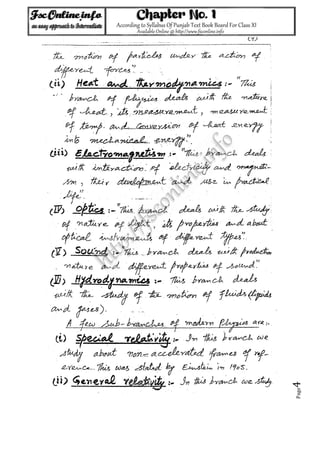 Fsc Online.info
an easy approach to Intermediate
Chapter No. 1
According to Syllabus Of Punjab Text Book Board For Class XI
Available Online @ http://www.fsconline.info
the motion of particles under the action of
different forces".
(ii) Heat and Thermodynamics :- "This
branch of Physics deals with the nature
of heat, its measurement, measurement
of temp. and conversion of heat energy
into mechanical energy".
(iii) Electromagnetism :- "This branch deals
with interaction of electricity and magneti-
sm, their development and use in practical
life".
(IV) Optics :- "This branch deals with the study
of nature of light, its properties and about
optical instruments of different types".
(V) Sound :- "This branch deals with production
nature and different properties of sound".
(VI) Hydrodynamics :- This branch deals
with the study of the motion of fluids (liquids
and gases).
A few sub-branches of modern Physics are :.
(i) Special relativity :- In this branch we
study about non-accelerated frames of ref-
erence. This was stated by Einstein in 1905.
(ii) General relativity :- In this branch we study
Page 4